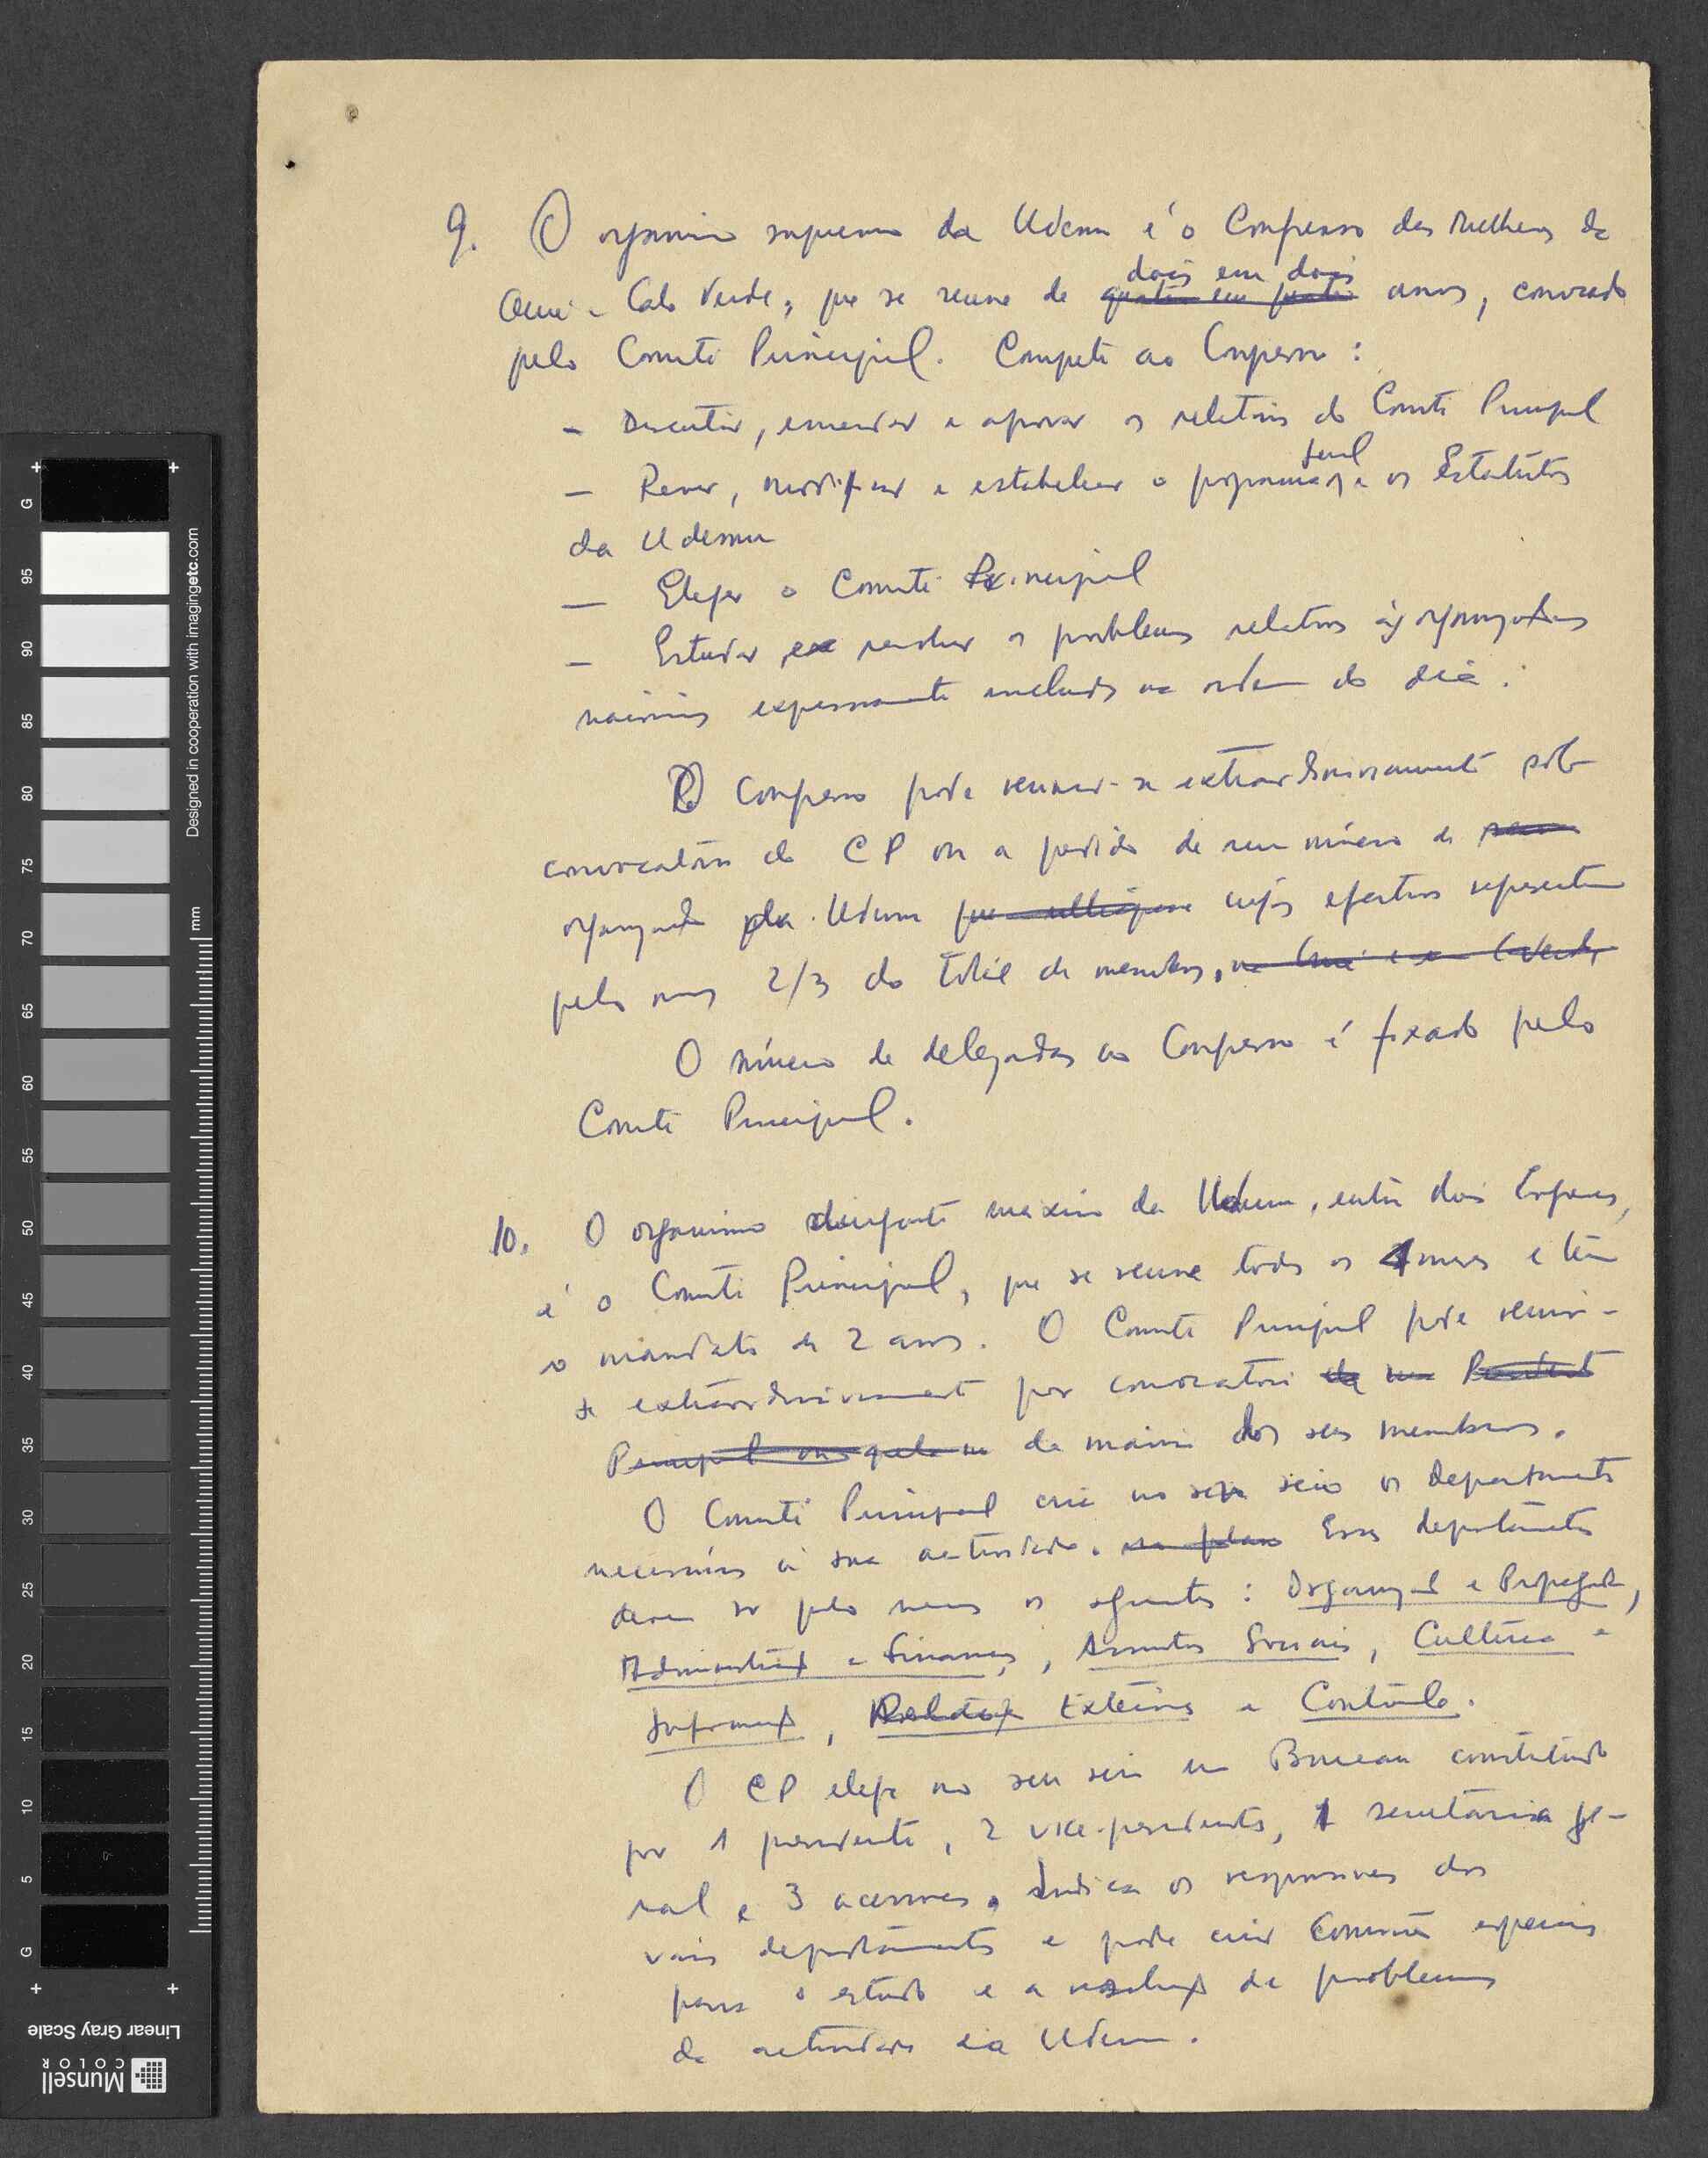 9. O organismo supremo da Udemu é o Congresso das Mulheres da
Guiné e Cabo Verde, que se reune de quatro em quatro dois em dois anos, convocado
pelo Comité Principal. Compete ao Congresso:
- Discutir, emendar e aprovar os relatórios do Comité Principal
- Rever, modificar e estabelecer o programa geral e os Estatutos
da Udemu
- Eleger o Comité Principal
- Estudar e resolver os problemas relativos às organizações
expressamente incluidos na ordem do dia.
O Congresso pode reunir-se extraordinariamente sob
convocatória do CP ou a pedido de um número de
da Udemu cujos efectivos representem
pelo menos 2/3 do total de membros, na Guiné e em C. Verde
O número de delegadas ao Congresso é fixado pelo
Comité Principal.
10. O organismo dirigente máximo da Udemu, entre dois Congressos,
é o Comité Principal, que se reune todos os 4 meses e tem
o mandato de 2 anos. O Comité Principal pode reunir-
se extraordinariamente por convocatória
da maioria dos seus membros.
O Comité Principal cria no seu seio os departamentos
necessários à sua actividade. Esses departamentos
devem ser pelo menos os seguintes: Organização e Propaganda,
Administração e Finanças, Assuntos Sociais, Cultura e
Informação, Relações Exteriores e Contrôle.
O CP elege no seu seio um Bureau constituído
por 1 presidente, 2 vice-presidentes, 1 secretária ge-
ral e 3 acessores. Indica os responsáveis dos
vários departamentos e pode criar Comissões especiais
para o estudo e a resolução de problemas
da actividade da Udemu.
Designed in cooperation with imagingetc.com
mm
G 95 90 85 80 75 70 65 60 55 50 45 40 35 30 25 20 15 10 5 G
Linear Gray Scale
Munsell
COLOR